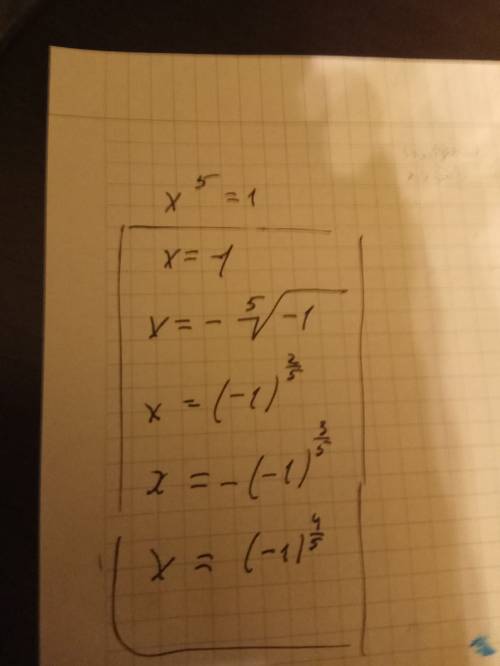 x⁵ = 1
x = -1
x = - ⁵√-1
x = (-1)^(2/5)
x = -(-1)^(3/5)
x = (-1)^(4/5)